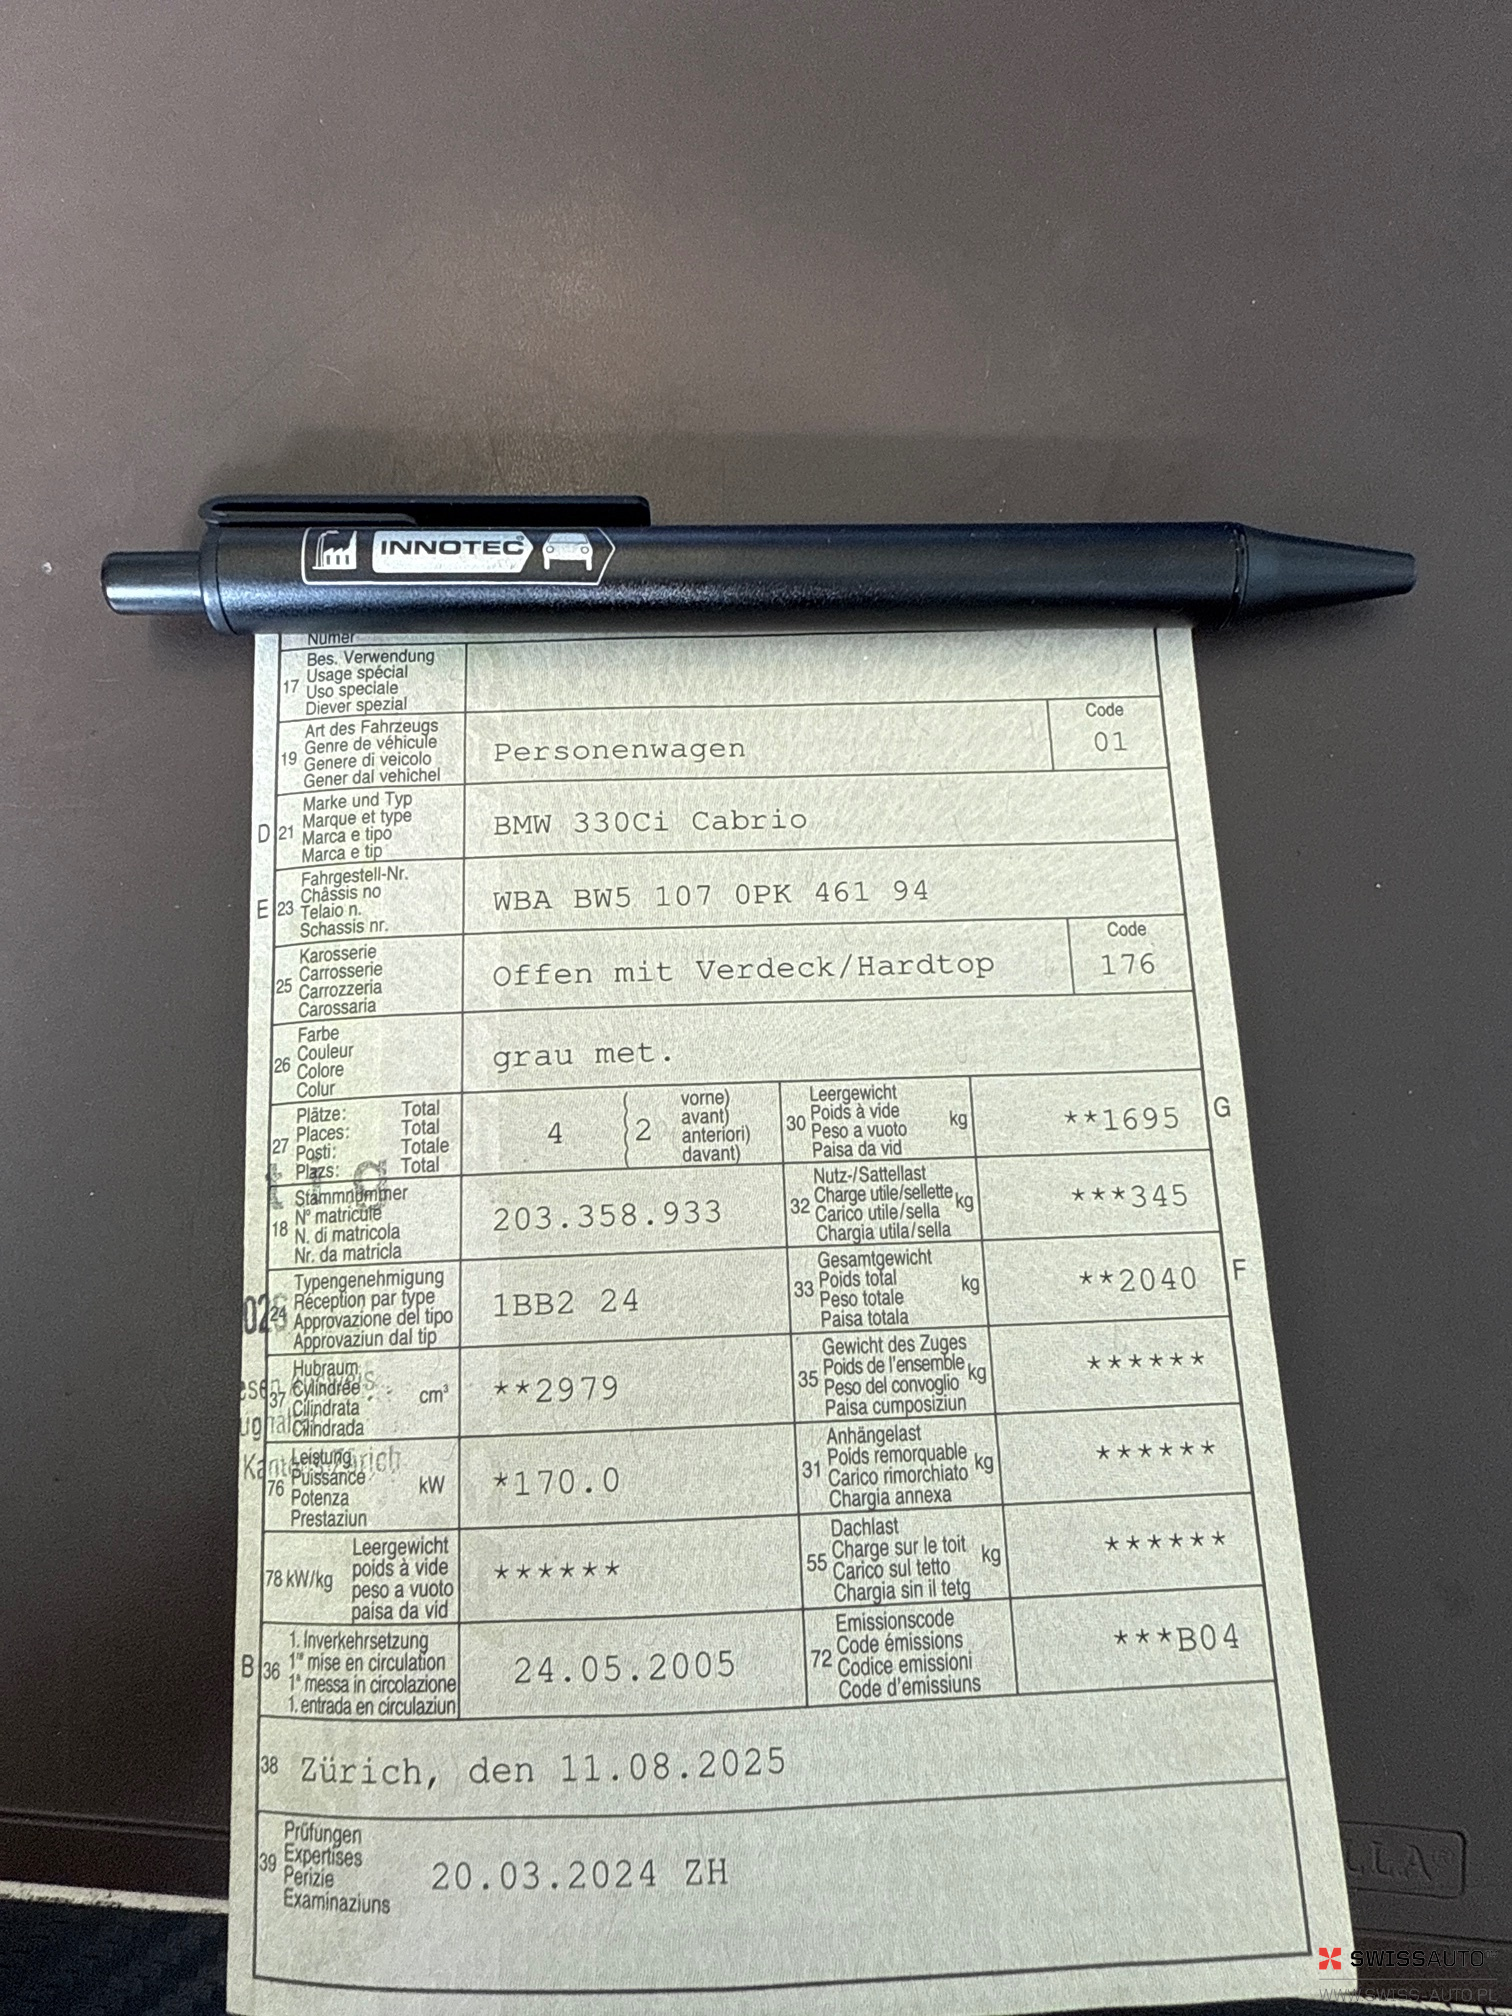 INNOTEC
Numer
17 Bes. Verwendung
Usage spécial
Uso speciale
Diever spezial
19 Art des Fahrzeugs
Genre de véhicule
Genere di veicolo
Gener dal vehichel
Personenwagen
Code
01
D 21 Marke und Typ
Marque et type
Marca e tipo
Marca e tip
BMW 330Ci Cabrio
E 23 Fahrgestell-Nr.
Châssis no
Telaio n.
Schassis nr.
WBA BW5 107 0PK 461 94
25 Karosserie
Carrosserie
Carrozzeria
Carossaria
Offen mit Verdeck/Hardtop
Code
176
26 Farbe
Couleur
Colore
Colur
grau met.
27 Plätze: Total
Places: Total
Posti: Totale
Plazs: Total
4 2
vorne)
avant)
anteriori)
davant)
30 Leergewicht
Poids à vide kg
Peso a vuoto
Paisa da vid
**1695
G
18 Stammnummer
N° matricule
N. di matricola
Nr. da matricla
203.358.933
32 Nutz-/Sattellast
Charge utile/sellette kg
Carico utile/sella
Chargia utila/sella
***345
24 Typengenehmigung
Réception par type
Approvazione del tipo
Approvaziun dal tip
1BB2 24
33 Gesamtgewicht
Poids total kg
Peso totale
Paisa totala
**2040
F
37 Hubraum
Cylindrée cm³
Cilindrata
Cilindrada
**2979
35 Gewicht des Zuges
Poids de l'ensemble kg
Peso del convoglio
Paisa cumposiziun
******
76 Leistung
Puissance kW
Potenza
Prestaziun
*170.0
31 Anhängelast
Poids remorquable kg
Carico rimorchiato
Chargia annexa
******
78 kW/kg Leergewicht
poids à vide
peso a vuoto
paisa da vid
******
55 Dachlast
Charge sur le toit kg
Carico sul tetto
Chargia sin il tetg
******
B 36 1. Inverkehrsetzung
1re mise en circulation
1a messa in circolazione
1. entrada en circulaziun
24.05.2005
72 Emissionscode
Code émissions
Codice emissioni
Code d'émissiuns
***B04
38 Zürich, den 11.08.2025
39 Prüfungen
Expertises
Perizie
Examinaziuns
20.03.2024 ZH
SWISSAUTO
WWW.SWISS-AUTO.PL